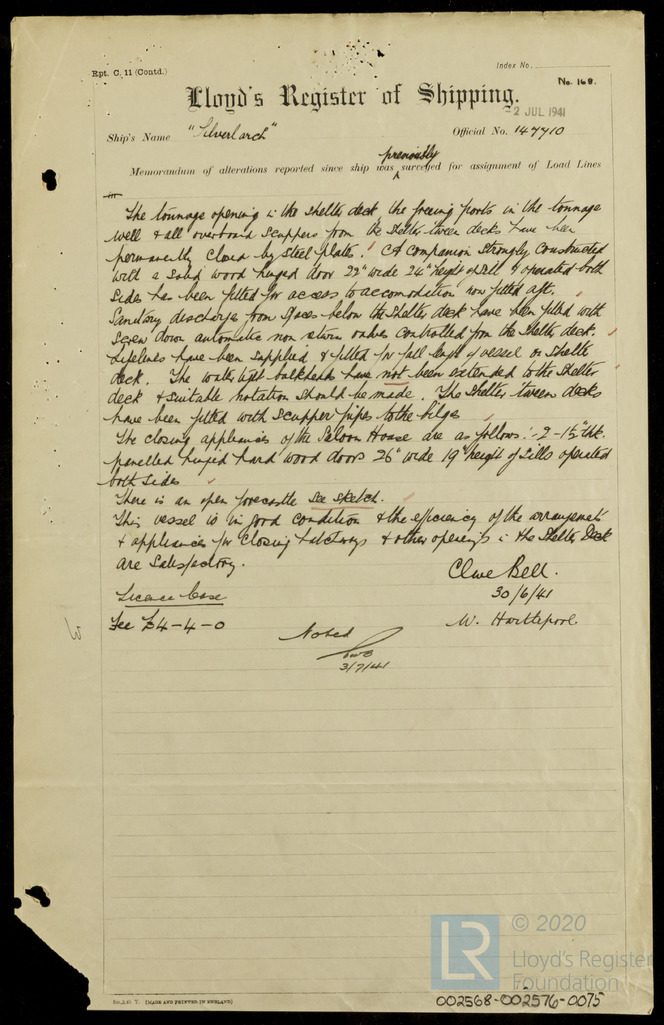 Rpt. C. 11 (Contd.)
Index No.
No. 168.
Lloyd's Register of Shipping.
2 JUL 1941
Ship's Name "Silverlarch" Official No. 147710
previously
Memorandum of alterations reported since ship was surveyed for assignment of Load Lines
The tonnage opening in the shelter deck, the freeing ports in the tonnage
well & all overboard scuppers from the shelter tween decks have been
permanently closed by steel plates. A Companion strongly constructed
with a solid wood hinged door 22" wide 24" height of sill & operated both
sides has been fitted for access to accomodation now fitted aft.
Sanitary discharges from spaces below the shelter deck have been fitted with
screw down automatic non return valves controlled from the shelter deck.
Lifelines have been supplied & fitted for full length of vessel on shelter
deck. The watertight bulkheads have not been extended to the shelter
deck & suitable notation should be made. The shelter tween decks
have been fitted with scupper pipes to the bilges
The closing appliances of the Saloon House are as follows:- 2 - 1½" thk.
panelled hinged hard wood doors 26" wide 19" height of sills operated
both sides
There is an open forecastle see sketch.
This vessel is in good condition & the efficiency of the arrangements
& appliances for closing hatchways & other openings in the Shelter Deck
are satisfactory.
Clive Bell.
30/6/41
Licence Case
Fee £4-4-0
W. Hartlepool
Noted
3/7/41
(MADE AND PRINTED IN ENGLAND)
LR
© 2020
Lloyd's Register
Foundation
002568-002576-0075